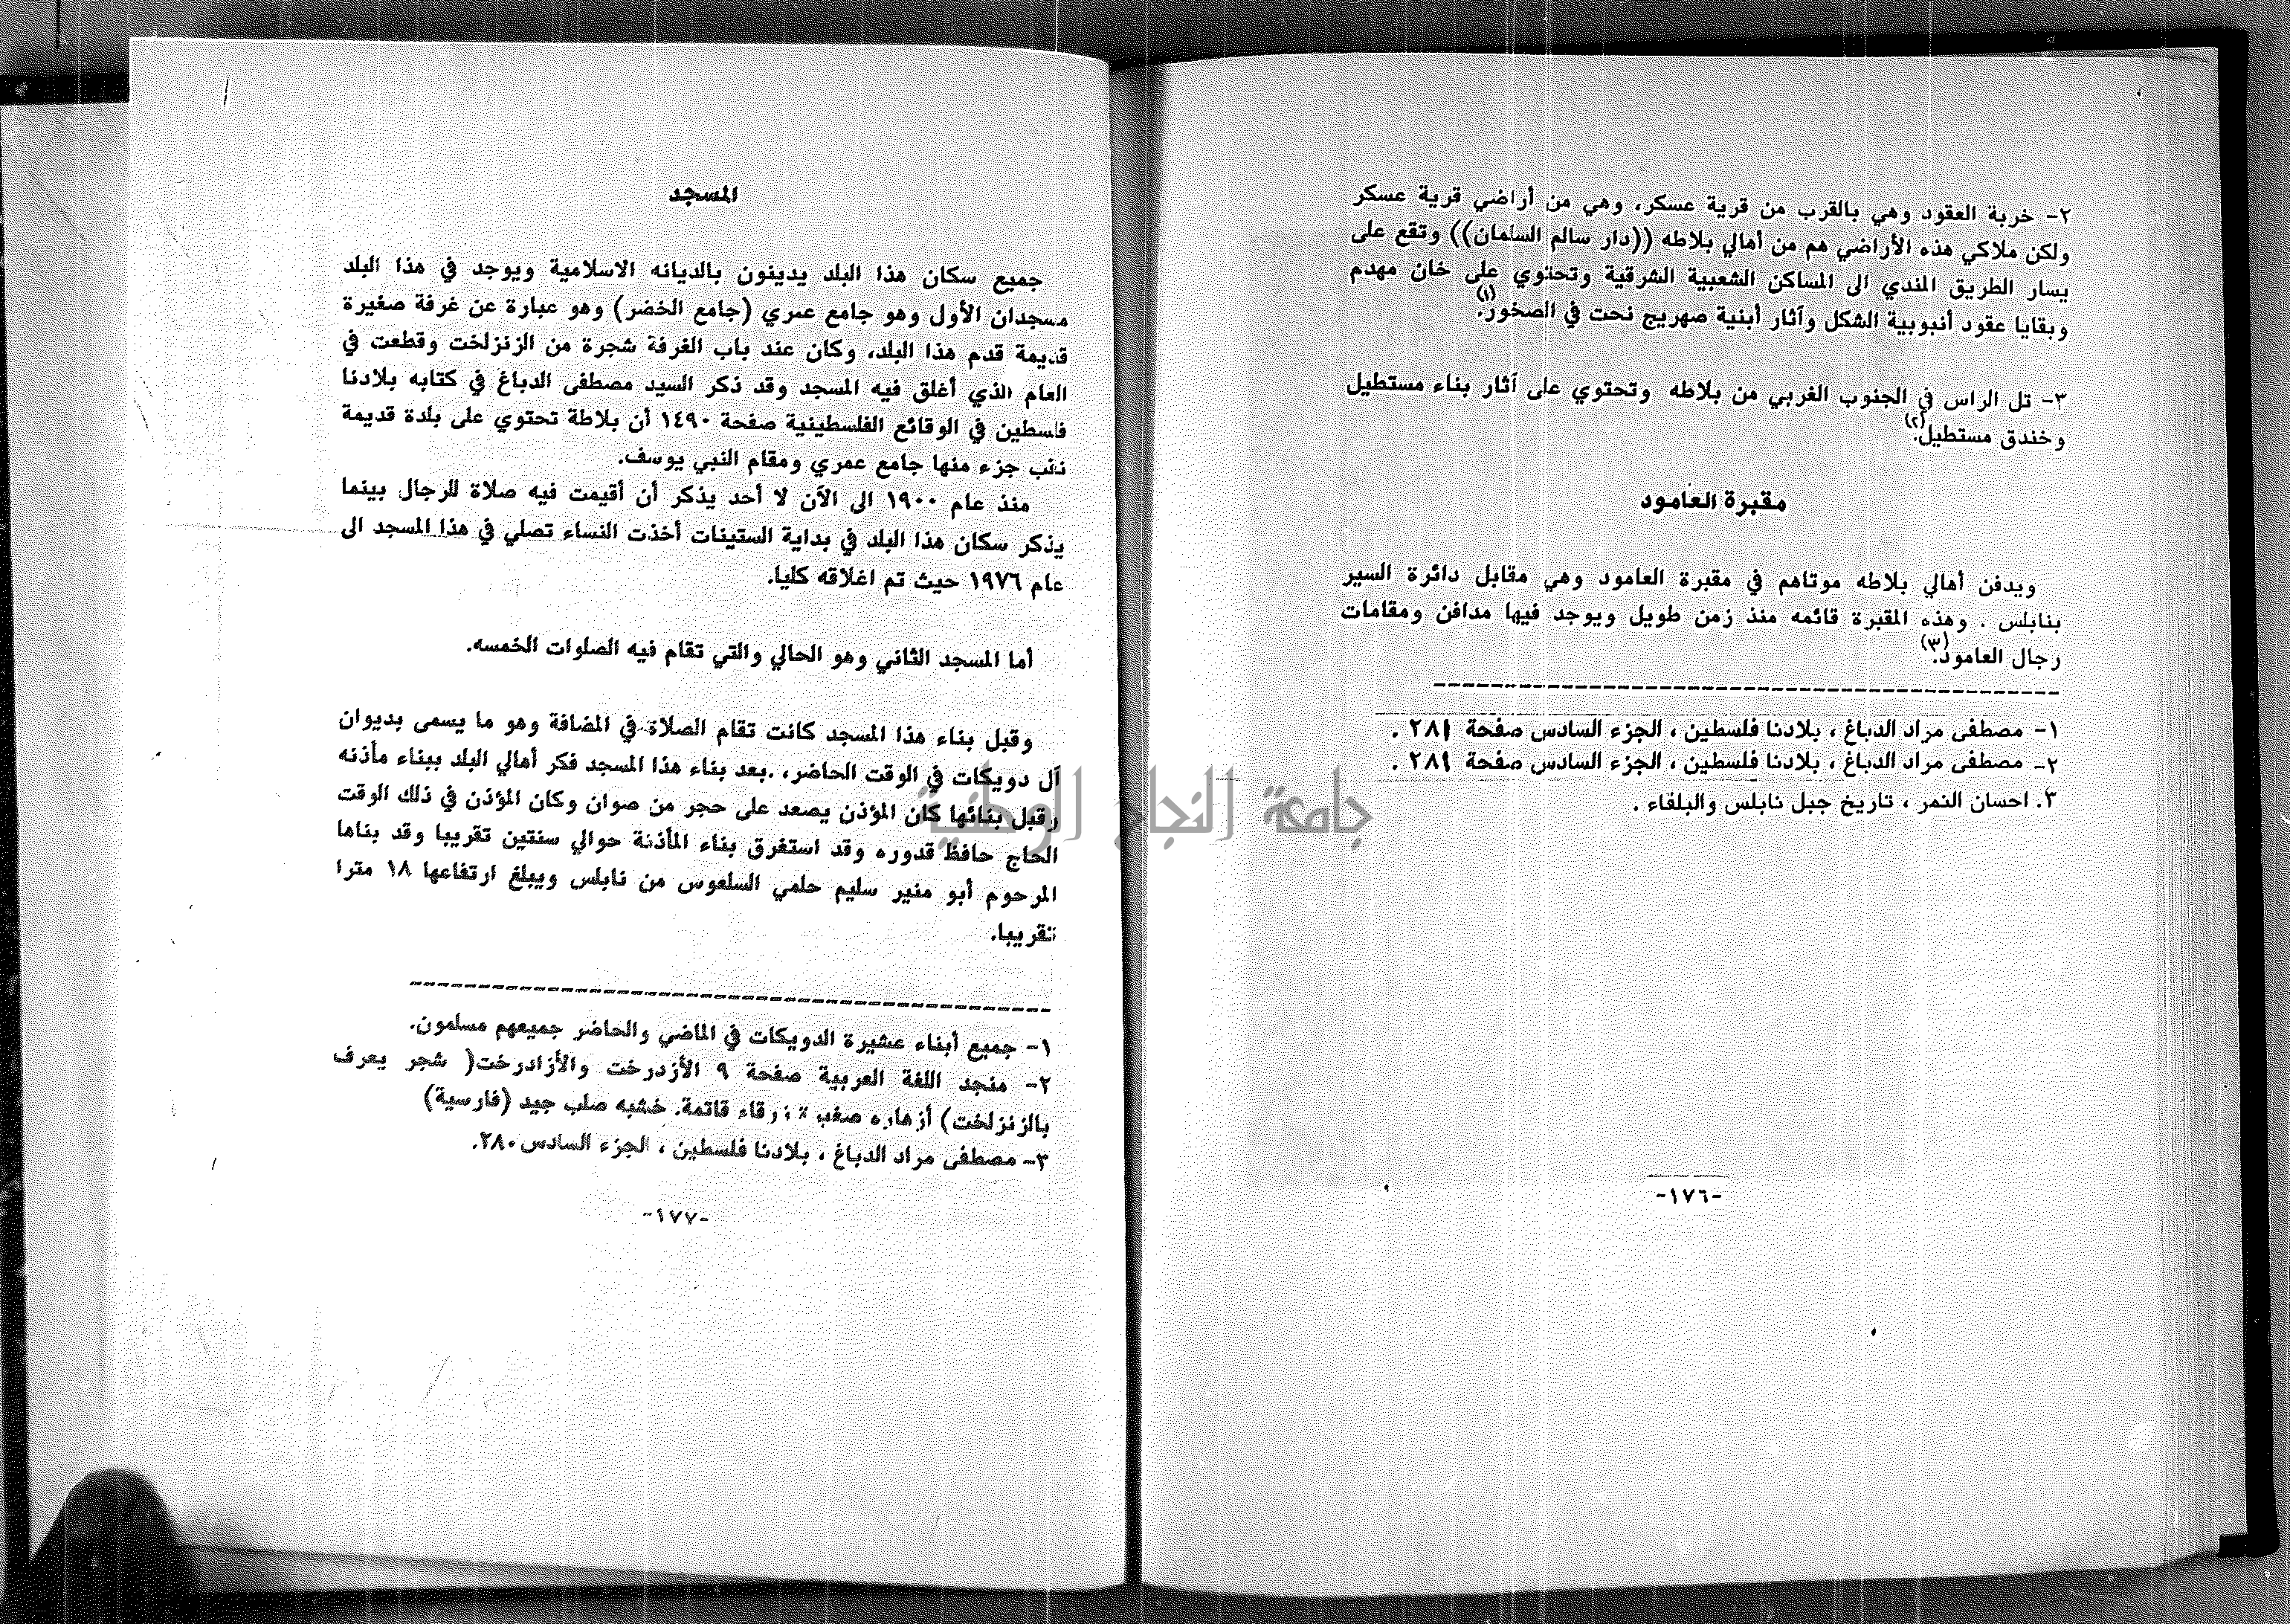 ٢- خربة العقود وهي بالقرب من قرية عسكر، وهي من أراضي قرية عسكر
ولكن ملاكي هذه الأراضي هم من أهالي بلاطه ((دار سالم السلمان)) وتقع على
يسار الطريق المندي الى المساكن الشعبية الشرقية وتحتوي على خان مهدم
وبقايا عقود أنبوبية الشكل وآثار أبنية صهريج نحت في الصخور.(١)
٣- تل الراس في الجنوب الغربي من بلاطه وتحتوي على آثار بناء مستطيل
وخندق مستطيل.(٢)
مقبرة العامود
ويدفن أهالي بلاطه موتاهم في مقبرة العامود وهي مقابل دائرة السير
بنابلس . وهذه المقبرة قائمه منذ زمن طويل ويوجد فيها مدافن ومقامات
رجال العامود.(٣)
١- مصطفى مراد الدباغ ، بلادنا فلسطين ، الجزء السادس صفحة ٢٨١ .
٢- مصطفى مراد الدباغ ، بلادنا فلسطين ، الجزء السادس صفحة ٢٨١ .
٣. احسان النمر ، تاريخ جبل نابلس والبلقاء .
-١٧٦-
المسجد
جميع سكان هذا البلد يدينون بالديانه الاسلامية ويوجد في هذا البلد
مسجدان الأول وهو جامع عمري (جامع الخضر) وهو عبارة عن غرفة صغيرة
قديمة قدم هذا البلد، وكان عند باب الغرفة شجرة من الزنزلخت وقطعت في
العام الذي أغلق فيه المسجد وقد ذكر السيد مصطفى الدباغ في كتابه بلادنا
فلسطين في الوقائع الفلسطينية صفحة ١٤٩٠ أن بلاطة تحتوي على بلدة قديمة
نقب جزء منها جامع عمري ومقام النبي يوسف.
منذ عام ١٩٠٠ الى الآن لا أحد يذكر أن أقيمت فيه صلاة للرجال بينما
يذكر سكان هذا البلد في بداية الستينات أخذت النساء تصلي في هذا المسجد الى
عام ١٩٧٦ حيث تم اغلاقه كليا.
أما المسجد الثاني وهو الحالي والتي تقام فيه الصلوات الخمسه.
وقبل بناء هذا المسجد كانت تقام الصلاة في المضافة وهو ما يسمى بديوان
آل دويكات في الوقت الحاضر، .بعد بناء هذا المسجد فكر أهالي البلد ببناء مأذنه
وقبل بنائها كان المؤذن يصعد على حجر من صوان وكان المؤذن في ذلك الوقت
الحاج حافظ قدوره وقد استغرق بناء المأذنة حوالي سنتين تقريبا وقد بناها
المرحوم أبو منير سليم حلمي السلعوس من نابلس ويبلغ ارتفاعها ١٨ مترا
تقريبا.
١- جميع أبناء عشيرة الدويكات في الماضي والحاضر جميعهم مسلمون.
٢- منجد اللغة العربية صفحة ٩ الأزدرخت والأزادرخت( شجر يعرف
بالزنزلخت) أزهاره زرقاء قاتمة. خشبه صلب جيد (فارسية)
٣- مصطفى مراد الدباغ ، بلادنا فلسطين ، الجزء السادس ٢٨٠.
-١٧٧-
جامعة النجاح الوطنية